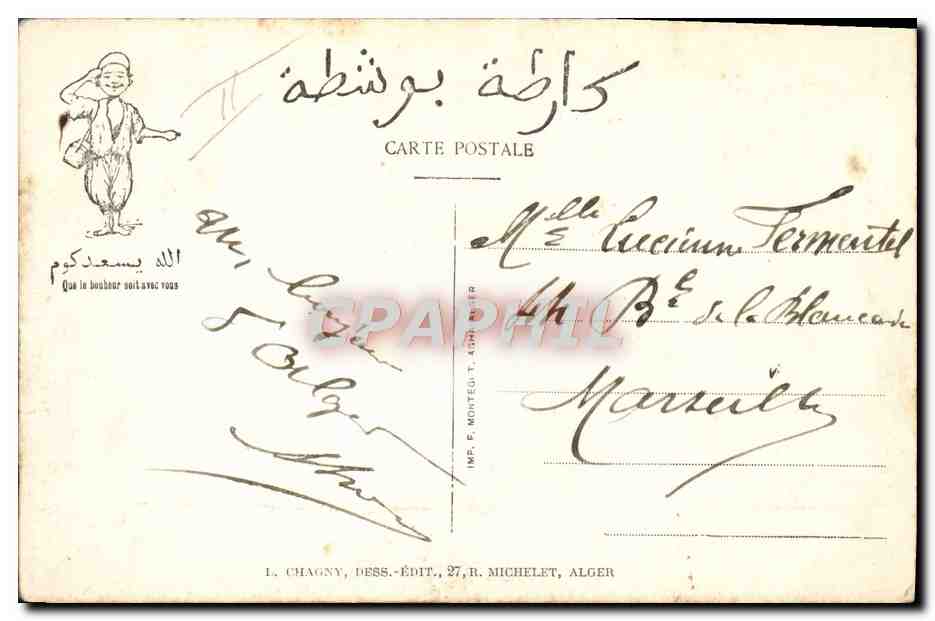 كارطة بوسطة
CARTE POSTALE
الله يسعدكوم
Que le bonheur soit avec vous
un baiser
d'Alger
Mlle Lucienne Fermentel
44 Bd de la Blancarde
Marseille
IMP. F. MONTEGUT, AGHA-ALGER
CPAPHIL
L. CHAGNY, DESS.-ÉDIT., 27, R. MICHELET, ALGER